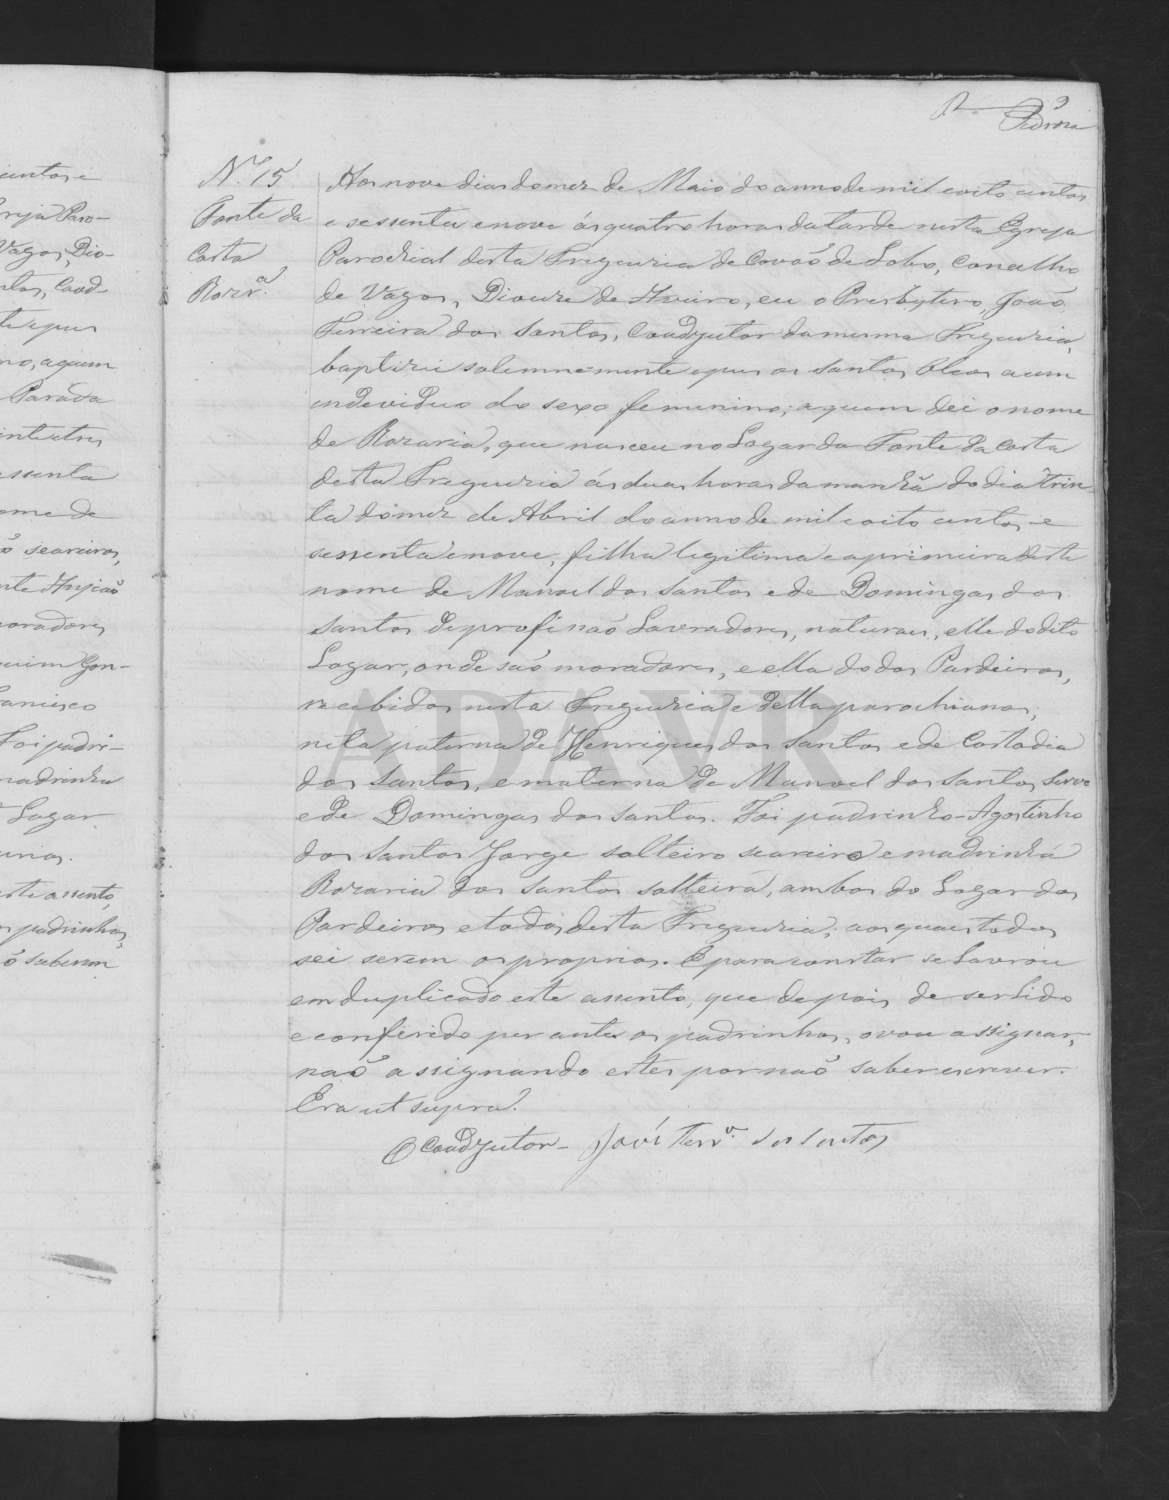 9
N.º 15
Fonte da
Costa
Rozr.ª
Aos nove dias do mez de Maio do anno de mil e oito centos
e sessenta e nove ás quatro horas da tarde nesta Egreja
Parochial desta Freguezia de Covaõ de Lobo, Concelho
de Vagos, Diocese de Aveiro, eu o Presbytero, Joaõ
Ferreira dos Santos, Coadjutor da mesma Freguezia,
baptizei solemnemente e puz os Santos Oleos a um
individuo do sexo femenino, a quem dei o nome
de Rozaria, que nasceu no Logar da Fonte da Costa
desta Freguezia ás duas horas da manhã do dia trin-
ta do mez de Abril do anno de mil e oito centos e
sessenta e nove, filha legitima e a primeira deste
nome de Manoel dos Santos e de Domingas dos
Santos de profissaõ Lavradores, naturaes, elle do dito
Logar, onde saõ moradores, e ella do dos Pardeiros,
recebidos nesta Freguezia e della parochianos,
neta paterna de Henriques dos Santos e de Custodia
dos Santos, e materna de Manoel dos Santos
e de Domingas dos Santos. Foi padrinho Agostinho
dos Santos Jorge solteiro seareiro e madrinha
Rozaria dos Santos solteira, ambos do Logar dos
Pardeiros e todos desta Freguezia, aos quaes todos
sei serem os proprios. E para constar se Lavrou
em duplicado este assento, que depois de ser Lido
e conferido perante os padrinhos, o vou assignar,
naõ assignando estes por naõ saber escrever.
Era ut supra.
O Coadjutor - Joaõ Ferr.ª dos Santos
ADAVR